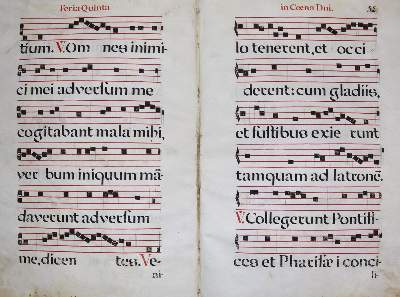 Feria Quinta
tium. V. Om nes inimi-
ci mei adversum me
cogitabant mala mihi,
ver bum iniquum mā-
daverunt adversum
me, dicen tes. Ve-
ni-
in Coena Dni.
lo tenerent, et occi
derent: cum gladiis,
et fustibus exie runt
tamquam ad latronē.
V. Collegerunt Pontifi-
ces et Pharisæi conci-
li-